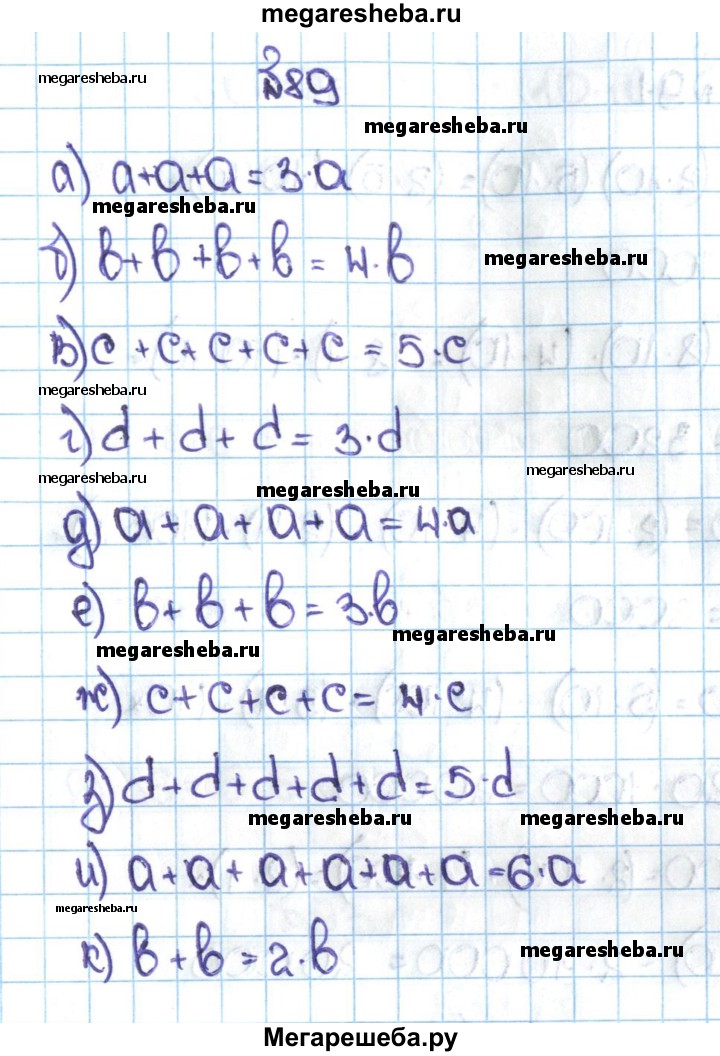 megaresheba.ru
megaresheba.ru
№89
megaresheba.ru
а) a+a+a=3·a
megaresheba.ru
б) b+b+b+b=4·b
megaresheba.ru
в) c+c+c+c+c=5·c
megaresheba.ru
г) d+d+d=3·d
megaresheba.ru
megaresheba.ru
megaresheba.ru
д) a+a+a+a=4·a
е) b+b+b=3·b
megaresheba.ru
megaresheba.ru
ж) c+c+c+c=4·c
з) d+d+d+d+d=5·d
megaresheba.ru
megaresheba.ru
и) a+a+a+a+a+a=6·a
megaresheba.ru
к) b+b=2·b
megaresheba.ru
Мегарешеба.ру